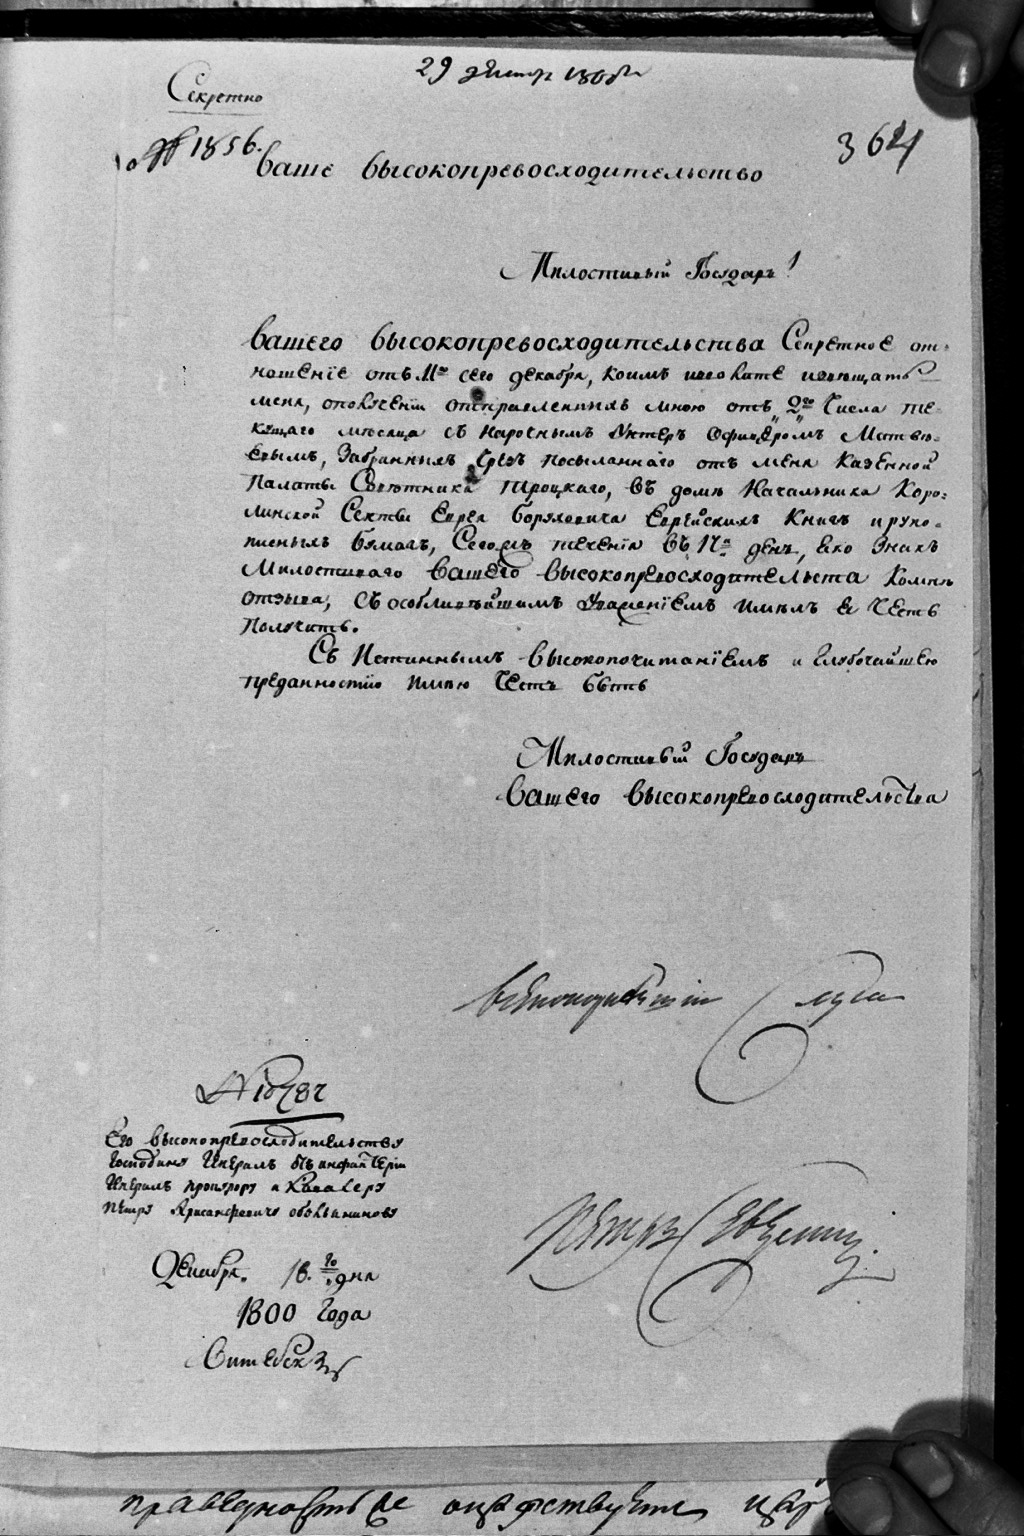 29 декабр 1800
Секретно
№ 1856.
364
Ваше высокопревосходительство
Милостивый Государь!
Вашего высокопревосходительства Секретное от=
ношение отъ 11го сего декабря, коимъ изволите извещать
меня, ополучении отправленныхъ мною отъ 2го Числа те=
кущаго месяца съ нарочнымъ Унтеръ Офицеромъ Матвѣ=
евымъ, Забранныхъ Чрезъ посыланнаго отъ меня Казенной
Палаты Советника Троцкаго, въ доме Начальника Коро=
линской Секты Еврея Боруховича Еврейскихъ Книгъ и руко=
писныхъ бумагъ, Сего течения въ 17й день, яко Знакъ
Милостиваго Вашего Высокопревосходительста Комне
отзыва, съ особливейшимъ Уважениемъ имелъ я Честь
Получить.
Съ Истиннымъ высокопочитаниемъ и глубочайшею
преданностию имею Честь быть
Милостивый Государь
Вашего высокопревосходительства
всепокорнейший Слуга
Его высокопревосходительству
Господину Генералъ отъ инфантерии
Генералъ прокурору и Кавалеру
Петру Хрисанфовичу обольянинову
Декабря. 18.го дня
1800 Года
Витебскъ
праведность